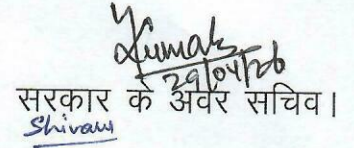 Kumar
29/04/26
सरकार के अवर सचिव।
Shivam